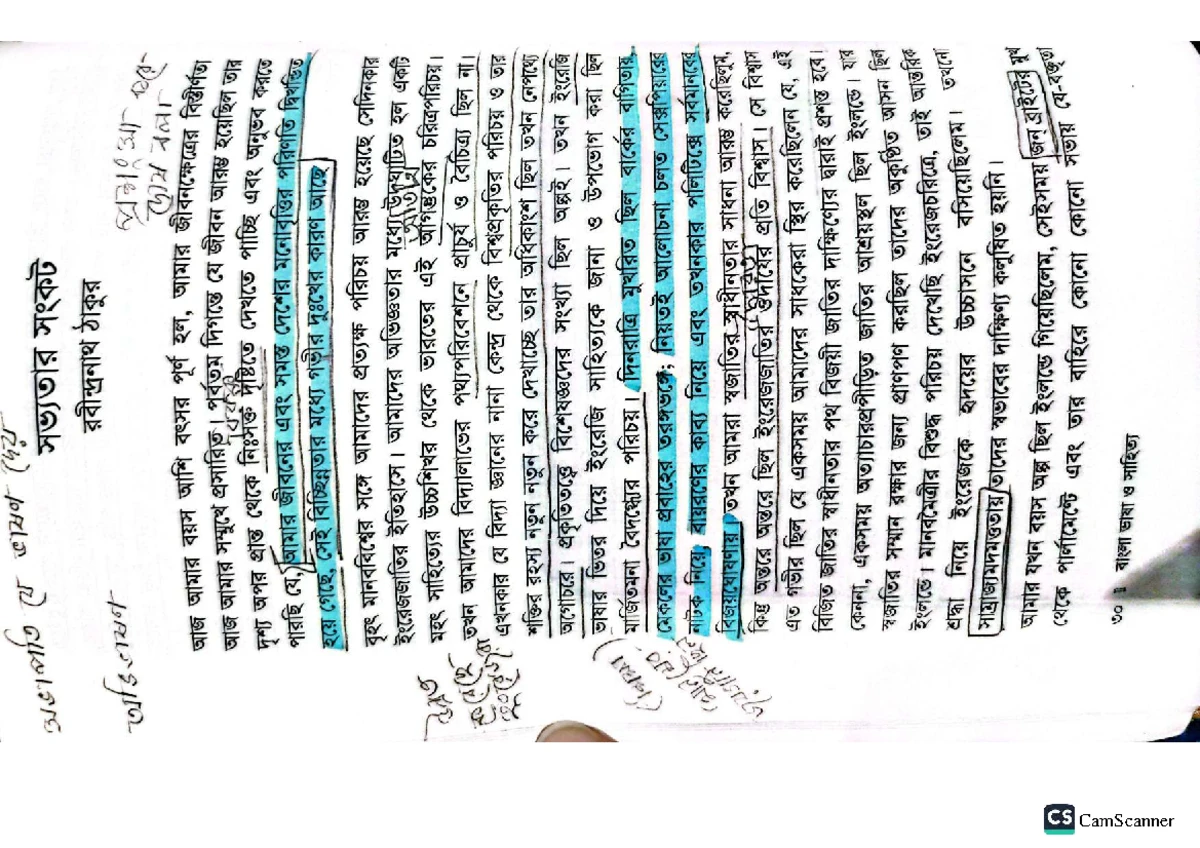 সভাপতি যে ভাষণ দেয়
অভিভাষণ
সভ্যতার সংকট
রবীন্দ্রনাথ ঠাকুর
আজ আমার বয়স আশি বৎসর পূর্ণ হল, আমার জীবনক্ষেত্রের বিস্তীর্ণতা
আজ আমার সম্মুখে প্রসারিত। পূর্বতম দিগন্তে যে জীবন আরম্ভ হয়েছিল তার
দৃশ্য অপর প্রান্ত থেকে নিঃসক্ত দৃষ্টিতে দেখতে পাচ্ছি এবং অনুভব করতে
পারছি যে, আমার জীবনের এবং সমস্ত দেশের মনোবৃত্তির পরিণতি দ্বিখণ্ডিত
হয়ে গেছে, সেই বিচ্ছিন্নতার মধ্যে গভীর দুঃখের কারণ আছে
বৃহৎ মানববিশ্বের সঙ্গে আমাদের প্রত্যক্ষ পরিচয় আরম্ভ হয়েছে সেদিনকার
ইংরেজজাতির ইতিহাসে। আমাদের অভিজ্ঞতার মধ্যে উদ্ঘাটিত হল একটি
মহৎ সাহিত্যের উচ্চশিখর থেকে ভারতের এই আগন্তুকের চরিত্রপরিচয়।
তখন আমাদের বিদ্যালাভের পথ্যপরিবেশনে প্রাচুর্য ও বৈচিত্র্য ছিল না।
এখনকার যে বিদ্যা জ্ঞানের নানা কেন্দ্র থেকে বিশ্বপ্রকৃতির পরিচয় ও তার
শক্তির রহস্য নতুন নতুন করে দেখাচ্ছে তার অধিকাংশ ছিল তখন নেপথ্যে
অগোচরে। প্রকৃতিতত্ত্বে বিশেষজ্ঞদের সংখ্যা ছিল অল্পই। তখন ইংরেজি
ভাষার ভিতর দিয়ে ইংরেজি সাহিত্যকে জানা ও উপভোগ করা ছিল
মার্জিতমনা বৈদগ্ধ্যের পরিচয়। দিনরাত্রি মুখরিত ছিল বার্কের বাগ্মিতায়,
মেকলের ভাষা প্রবাহের তরঙ্গভঙ্গে; নিয়তই আলোচনা চলত সেক্সপিয়ারের
নাটক নিয়ে, বায়রণের কাব্য নিয়ে এবং তখনকার পলিটিক্সে সর্বমানবের
বিজয়ঘোষণায়। তখন আমরা স্বজাতির স্বাধীনতার সাধনা আরম্ভ করেছিলুম,
কিন্তু অন্তরে অন্তরে ছিল ইংরেজজাতির ঔদার্যের প্রতি বিশ্বাস। সে বিশ্বাস
এত গভীর ছিল যে একসময় আমাদের সাধকেরা স্থির করেছিলেন যে, এই
বিজিত জাতির স্বাধীনতার পথ বিজয়ী জাতির দাক্ষিণ্যের দ্বারাই প্রশস্ত হবে।
কেননা, একসময় অত্যাচারপ্রপীড়িত জাতির আশ্রয়স্থল ছিল ইংলন্ডে। যার
স্বজাতির সম্মান রক্ষার জন্য প্রাণপণ করছিল তাদের অকুণ্ঠিত আসন ছিল
ইংলন্ডে। মানবমৈত্রীর বিশুদ্ধ পরিচয় দেখেছি ইংরেজচরিত্রে, তাই আন্তরিক
শ্রদ্ধা নিয়ে ইংরেজকে হৃদয়ের উচ্চাসনে বসিয়েছিলেম। তখনো
সাম্রাজ্যমদমত্ততায় তাদের স্বভাবের দাক্ষিণ্য কলুষিত হয়নি।
আমার যখন বয়স অল্প ছিল ইংলন্ডে গিয়েছিলেম, সেইসময় জন্ ব্রাইটের মুখ
থেকে পার্লামেন্টে এবং তার বাহিরে কোনো কোনো সভায় যে-বক্তৃতা
৩০ ॥ বাংলা ভাষা ও সাহিত্য
CS CamScanner